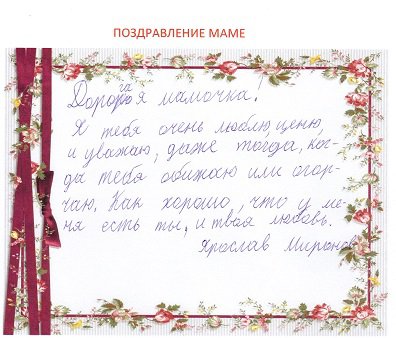 ПОЗДРАВЛЕНИЕ МАМЕ
Дорогая мамочка!
Я тебя очень люблю, ценю,
и уважаю, даже тогда, ког-
да тебя обижаю или огор-
чаю. Как хорошо, что у ме-
ня есть ты, и твоя любовь.
Ярослав Миронов